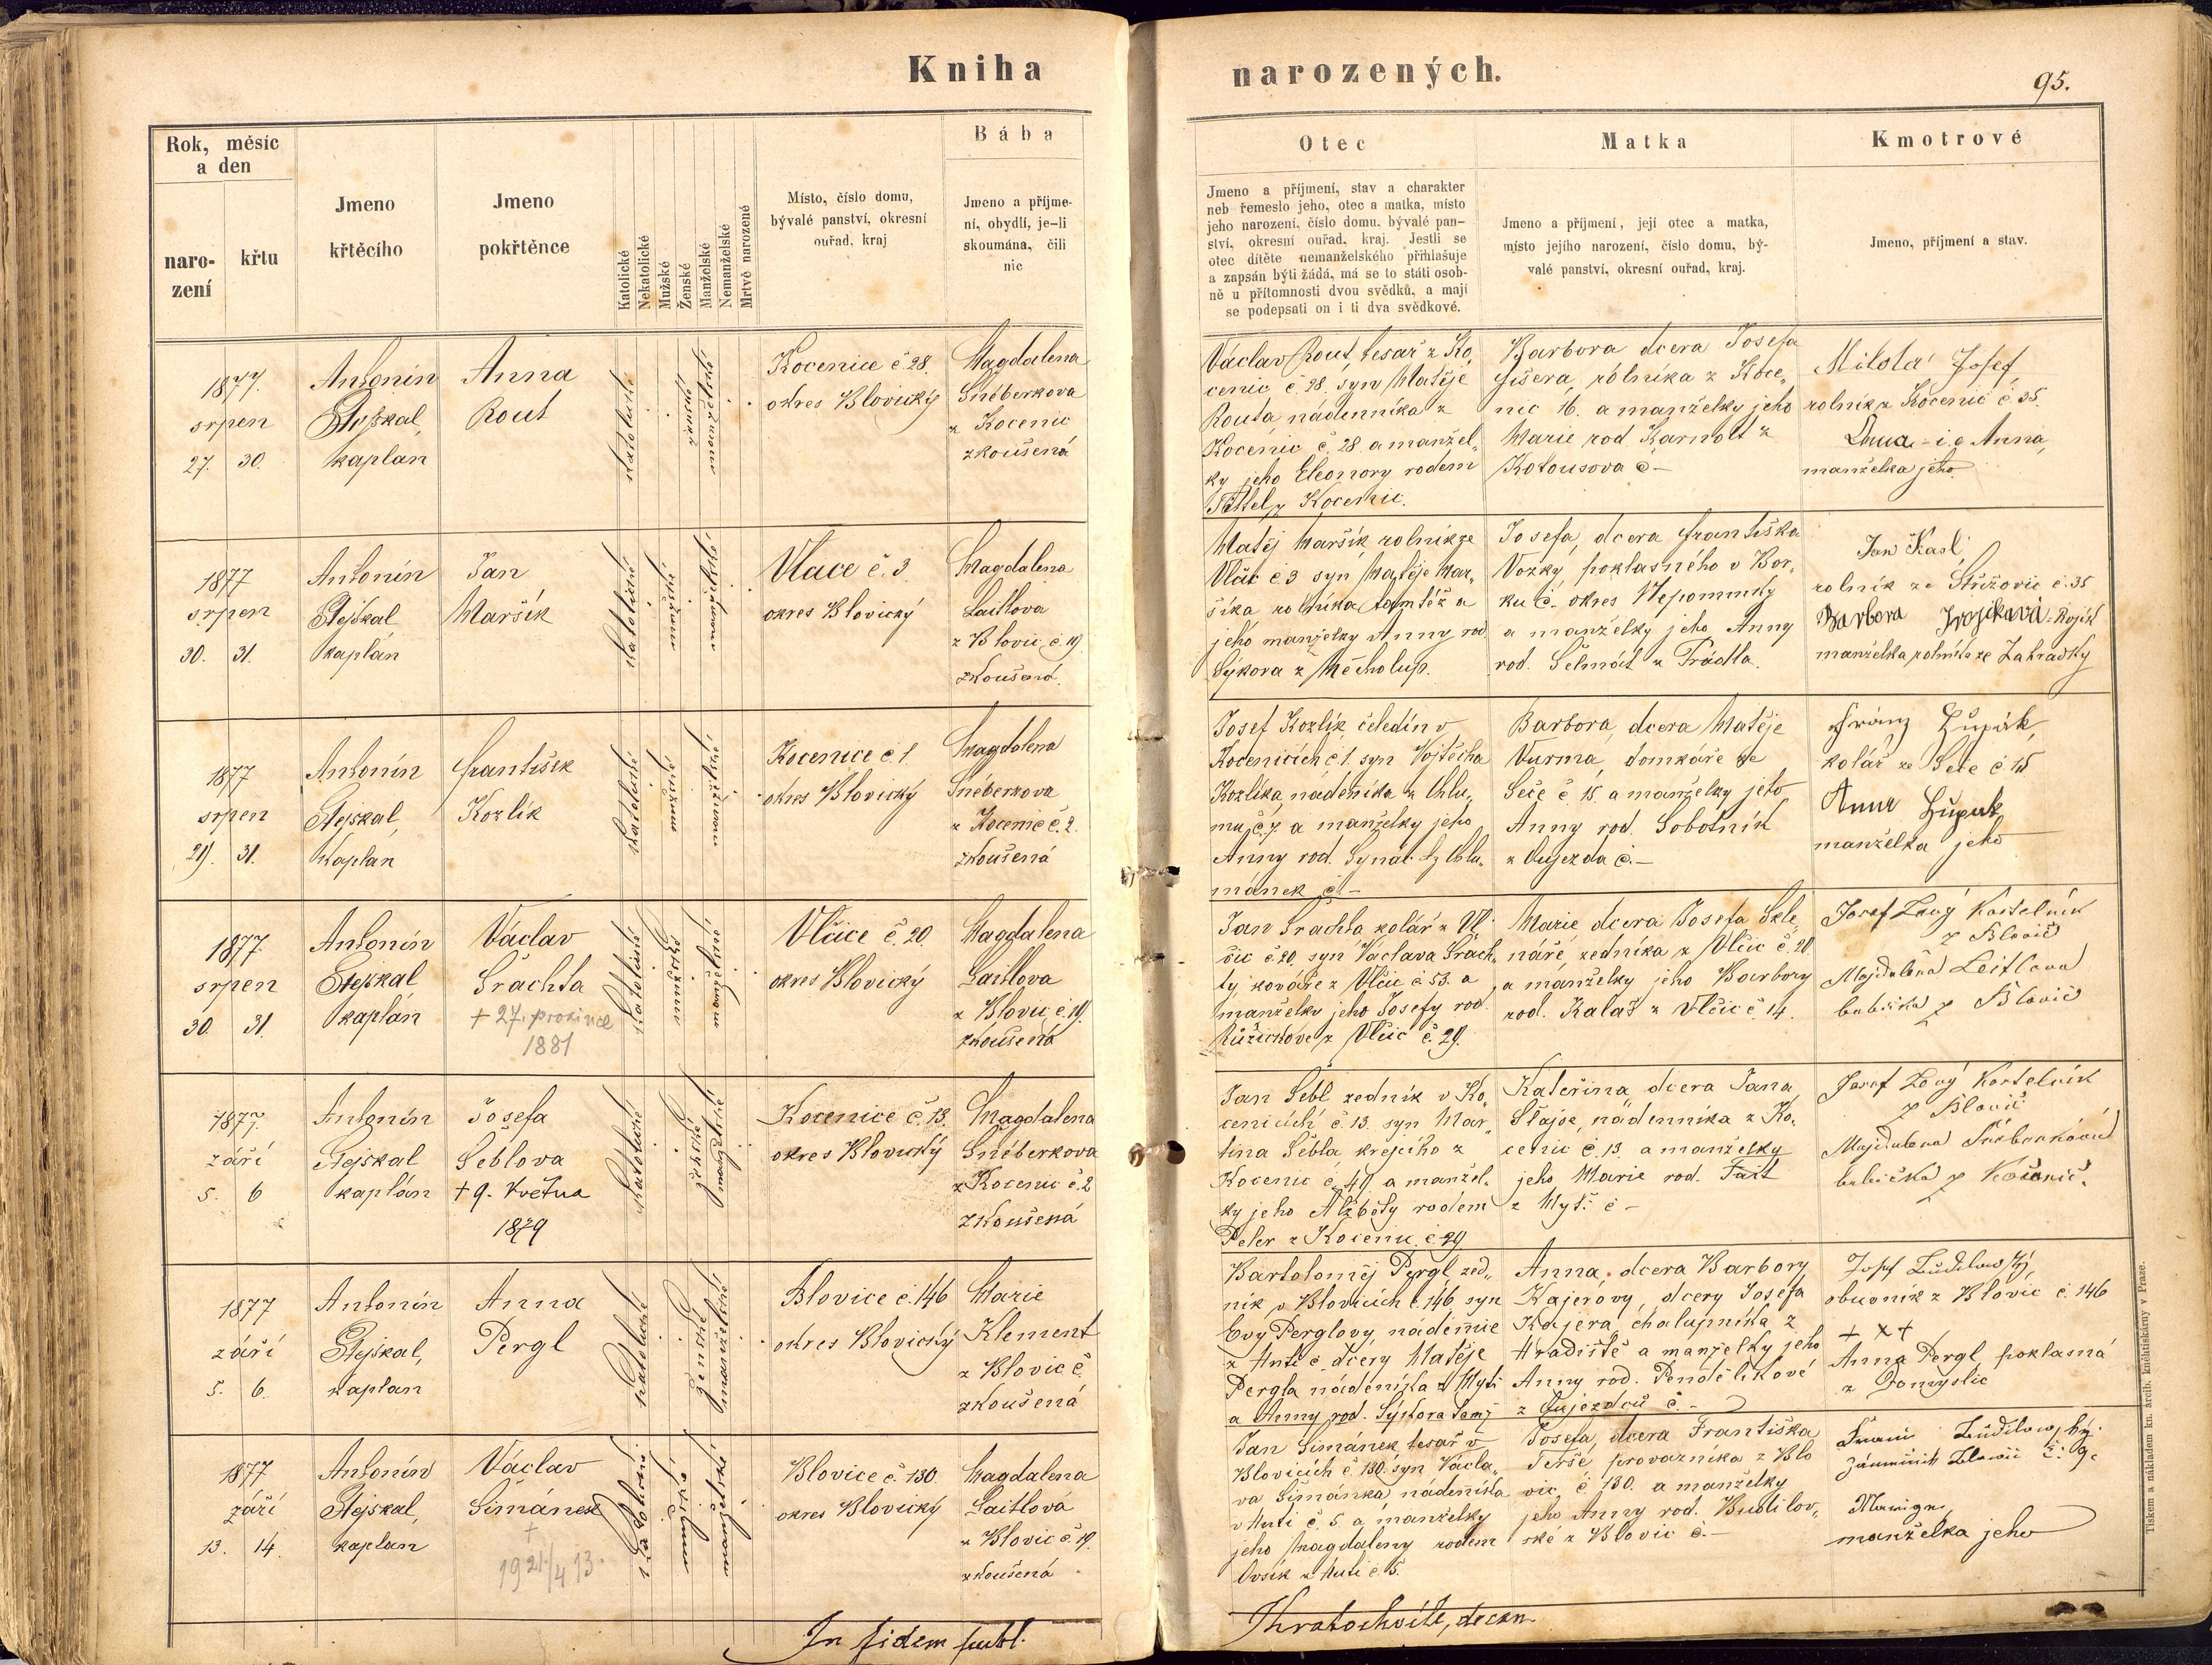 Kniha narozených.
95.
Rok, měsíc
a den
naro-
zení
křtu
Jmeno
křtěcího
Jmeno
pokřtěnce
Katolické
Nekatolické
Mužské
Ženské
Manželské
Nemanželské
Mrtvě narozené
Místo, číslo domu,
bývalé panství, okresní
ouřad, kraj
Bába
Jmeno a příjme-
ní, obydlí, je-li
skoumána, čili
nic
Otec
Jmeno a příjmení, stav a charakter
neb řemeslo jeho, otec a matka, místo
jeho narození, číslo domu, bývalé pan-
ství, okresní ouřad, kraj. Jestli se
otec dítěte nemanželského přihlašuje
a zapsán býti žádá, má se to státi osob-
ně u přítomnosti dvou svědků, a mají
se podepsati on i ti dva svědkové.
Matka
Jmeno a příjmení, její otec a matka,
místo jejího narození, číslo domu, bý-
valé panství, okresní ouřad, kraj.
Kmotrové
Jmeno, příjmení a stav.
1877.
srpen
27. 30.
Antonín
Stejskal,
kaplan
Anna
Rout
katolické
ženské
manželské
Kocenice č 28.
okres Blovický
Magdalena
Šnéberkova
z Kocenic
zkoušená
Václav Rout, tesař z Ko,
cenic č 28. syn Matěje
Routa, nádenníka z
Kocenic č. 28. a manžel,
ky jeho Eleonory rodem
z Kocenic.
Barbora dcera Josefa
Fišera, rolníka z Koce,
nic 16. a manželky jeho
Marie rod. Harnolt z
Kotousova č –
Josef
rolník z Kocenic č 35.
i. e. Anna,
manželka jeho
1877
srpen
30. 31.
Antonín
Stejskal,
kaplán
Jan
Maršík
katolické
mužské
manželské
Vlace č. 3
okres Blovický
Magdalena
Laitlova
z Blovic č. 19
zkoušená.
Matěj Maršík rolník ze
Vlčic č 3 syn Matěje Mar,
šíka rolníka tamtéž a
jeho manželky Anny rod
Sýkora z Měcholup.
Josefa, dcera Františka
Vozky, poklasného v Bor,
ku č. okres Nepomucky
a manželky jeho Anny
rod. Šelmát z Prádla.
Jan Kasl
rolník ze Střížovic č. 35
Barbora
manželka rolníka ze Zahrádky
1877
srpen
29. 31.
Antonín
Stejskal,
Kaplan
František
Kozlík
katolické
mužské
manželské
Kocenice č. 1
okres Blovický
Magdalena
Šnéberkova
z Kocenic č. 2.
zkoušená
Josef Kozlík čeledín v
Kocenicích č 1. syn Vojtěcha
Kozlíka, nádeníka z Chlu,
mu č. 7 a manželky jeho
Anny rod. z Chlu,
mánek č. –
Barbora, dcera Matěje
Vurma, domkáře ze
Seče č. 15. a manželky jeho
Anny rod. Sobotník
z Oujezda č. –
Franz Župák,
kolář ze Seče č 15
Anna Župak
manželka jeho
1877.
srpen
30. 31.
Antonín
Stejskal
kaplán
Václav
Šrachta
+ 27. prosince
1881
katolické
mužské
manželské
Vlčice č. 20.
okres Blovický
Magdalena
Laitlova
z Blovic č. 19.
zkoušená
Jan Šrachta kolář z Vl,
čic č 20. syn Václava Šrach,
ty, kováře z Vlčic č 53. a
manželky jeho Josefy rod.
Růžičkove z Vlčic č. 29.
Marie dcera Josefa Skle,
náře, zedníka z Vlčic č. 20.
a manželky jeho Barbory
rod. Kalaš z Vlčic č. 14.
Josef Levý Kostelník
z Blovic
Majdalena Leitlova
babička z Blovic
1877.
září
5. 6
Antonín
Stejskal
kaplán
Josefa
Šeblova
+ 9. května
1879
katolické
ženské
manželské
Kocenice č. 13.
okres Blovický
Magdalena
Šnéberkova
z Kocenic č. 2
zkoušená
Jan Šebl zedník v Ko,
cenicích č. 13. syn Mar,
tina Šebla krejčího z
Kocenic č. 41 a manžel,
ky jeho Alžběty rodem
Peler z Kocenic č. 29
Kateřina, dcera Jana
nádenníka z Ko,
cenic č. 13. a manželky
jeho Marie rod. Tait
z Mytí č –
Josef Levý Kostelník
z Blovic
Majdalena Šnéberková
babička z Kocenic.
1877
září
5. 6.
Antonín
Stejskal,
kaplan
Anna
Pergl
katolické
ženské
manželské
Blovice č. 146
okres Blovický
Marie
Klement
z Blovic č.
zkoušená
Bartoloměj Pergl, zed,
ník v Blovicích č. 146 syn
Evy Perglovy, nádennice
z Hutí č dcery Matěje
Pergla nádeníka z Mytí
a Anny rod. Sýkora
Anna, dcera Barbory
Kajerovy, dcery Josefa
Kajera, chalupníka z
Hradiště a manželky jeho
Anny rod. Pendělíkové
z Oujezdců č. –
Josef Zudilowský,
obuvník z Blovic č. 146
+ + +
Anna Pergl poklasná
z Domyslic
1877
září
13. 14.
Antonín
Stejskal,
kaplan
Václav
Šimánek
+
1921 4/13.
katolické
mužské
manželské
Blovice č. 130.
okres Blovický
Magdalena
Laitlová
z Blovic č 19.
zkoušená
Jan Šimánek tesař v
Blovicích č. 130. syn Václa,
va Šimánka, nádeníka
v Hutí č. 5. a manželky
jeho Magdaleny rodem
Ovsík z Hutí č. 5.
Josefa, dcera Františka
Terše, provazníka z Blo
vic, č. 130. a manželky
jeho Anny rod. Budilov,
ské z Blovic č. –
č. 9.
manželka jeho
In fidem publ.
Kratochvile, decan.
Tiskem a nákladem kn. arcib. knihtiskárny v Praze.